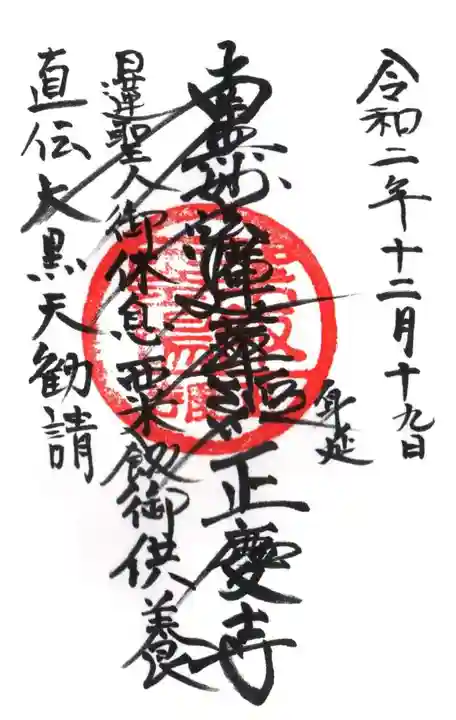 令和二年十二月十九日
身延
南無妙法蓮華経 正慶寺
日蓮聖人御休息 粟飯御供養
直伝大黒天勧請